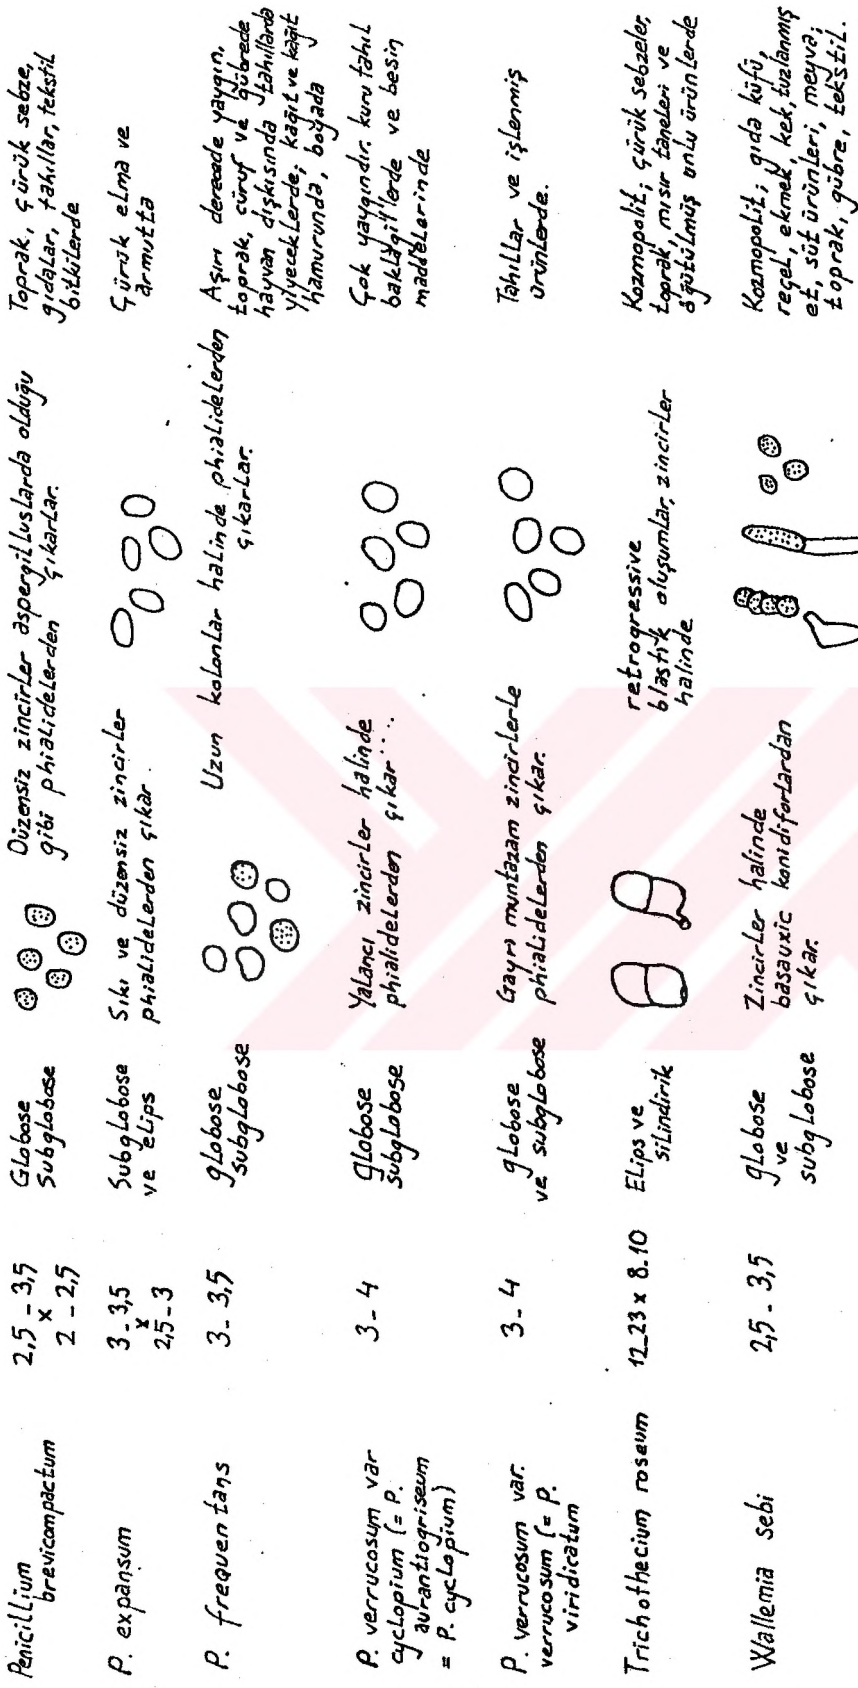 Penicillium
brevicompactum
2,5 - 3,5
x
2 - 2,5
Globose
Subglobose
Düzensiz zincirler aspergilluslarda olduğu
gibi phialidelerden çıkarlar.
Toprak, çürük sebze,
gıdalar, tahıllar, tekstil
bitkilerde
P. expansum
3 - 3,5
x
2,5 - 3
Subglobose
ve elips
Sıkı ve düzensiz zincirler
phialidelerden çıkar.
Çürük elma ve
armutta
P. frequentans
3 - 3,5
globose
subglobose
Uzun kolonlar halinde phialidelerden
çıkarlar.
Aşırı derecede yaygın,
toprak, çürük ve gübrede
hayvan dışkısında tahıllarda
yiyeceklerde, kağıt ve kağıt
hamurunda, boyada
P. verrucosum var
cyclopium (= P.
aurantiogriseum
= P. cyclopium)
3 - 4
globose
subglobose
Yalancı zincirler halinde
phialidelerden çıkar....
Çok yaygındır. kuru tahıl
baklagillerde ve besin
maddelerinde
P. verrucosum var.
verrucosum (= P.
viridicatum
3 - 4
globose
ve subglobose
Gayrı muntazam zincirlerle
phialidelerden çıkar.
Tahıllar ve işlenmiş
ürünlerde.
Trichothecium roseum
12_23 x 8.10
Elips ve
silindirik
retrogressive
blastik oluşumlar, zincirler
halinde
Kozmopolit; çürük sebzeler,
toprak, mısır taneleri ve
öğütülmüş unlu ürünlerde
Wallemia sebi
2,5 - 3,5
globose
ve
subglobose
Zincirler halinde
basauxic konidiforlardan
çıkar.
Kozmopolit; gıda küfü,
reçel, ekmek, kek, tuzlanmış
et, süt ürünleri, meyva;
toprak, gübre, tekstil.